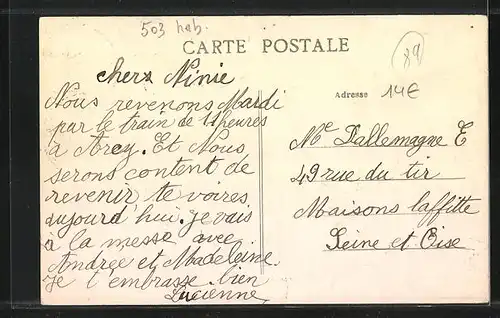 503 hab.
CARTE POSTALE
89
chers Ninie
Nous revenons Mardi
par le train de 11 heures
à Arcy. Et Nous
serons content de
revenir te voires
aujourd'hui. je vais
à la messe avec
Andree et Madeleine.
je t'embrasse bien
Lucienne
Adresse 14€
Me Dallemagne E
49 rue du tir
Maisons laffitte
Seine et Oise